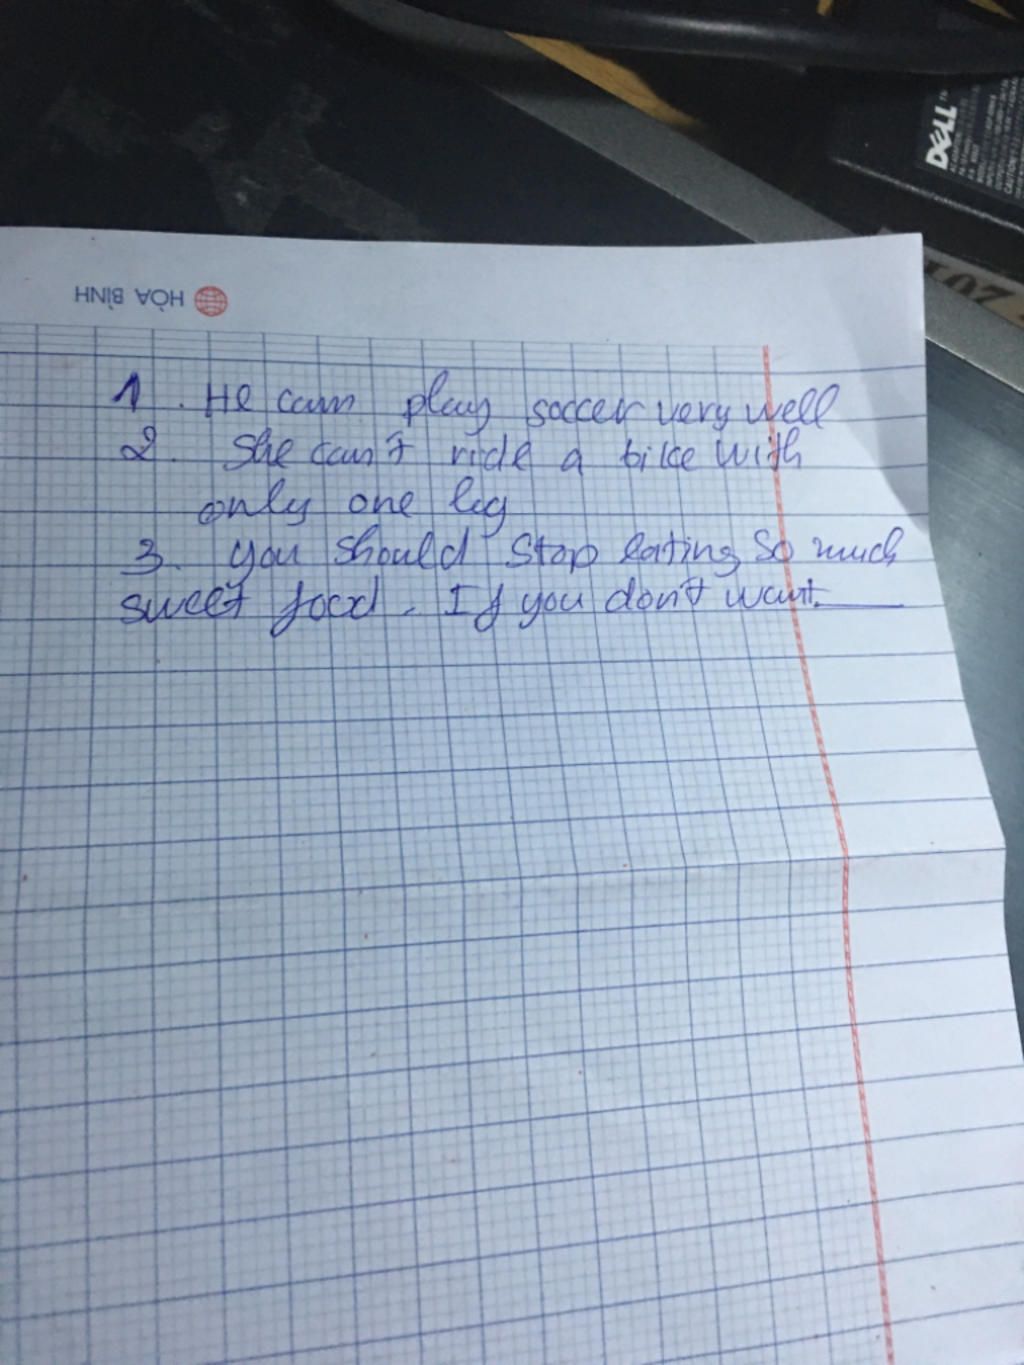 DELL
107
HÒA BÌNH
1. He can play soccer very well
2. She can't ride a bike with
only one leg
3. you should stop eating so much
sweet food. If you don't want.____